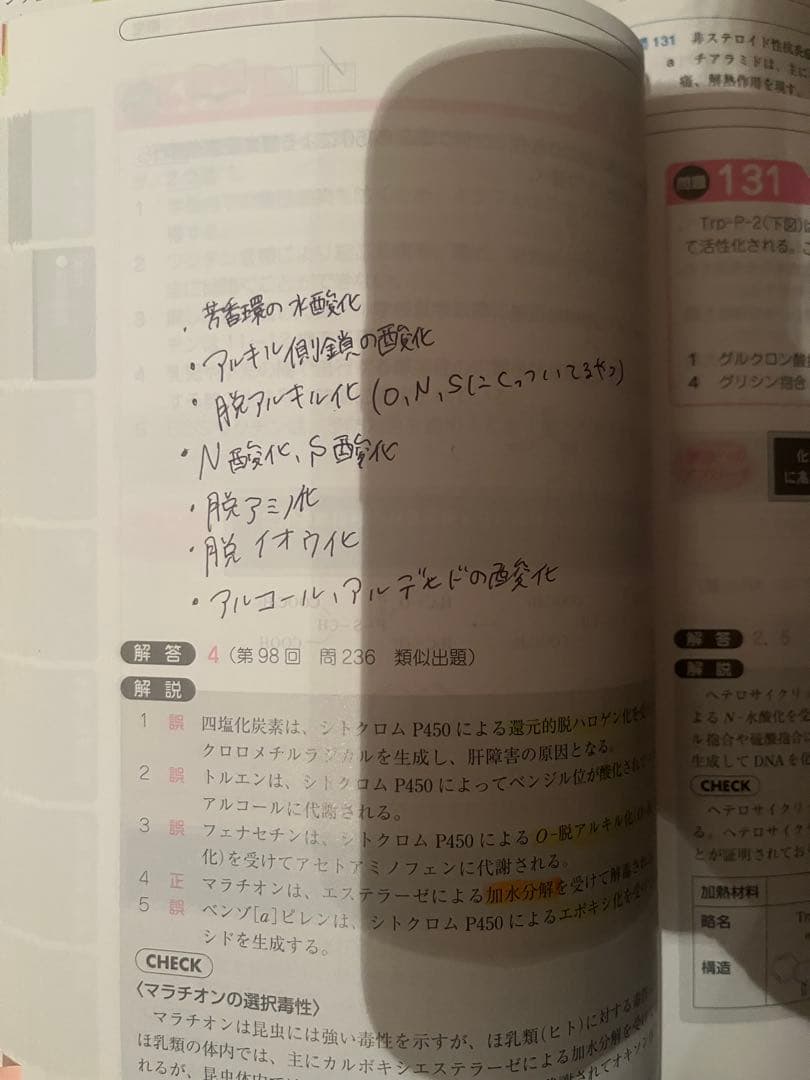 ・芳香環の水酸化
・アルキル側鎖の酸化
・脱アルキル化(O,N,Sにくっついてるやつ)
・N酸化、S酸化
・脱アミノ化
・脱イオウ化
・アルコール、アルデヒドの酸化
解答 4 (第98回 問236 類似出題)
解説
1 誤 四塩化炭素は、シトクロムP450による還元的脱ハロゲン化を
クロロメチルラジカルを生成し、肝障害の原因となる。
2 誤 トルエンは、シトクロムP450によってベンジル位が酸化され
アルコールに代謝される。
3 誤 フェナセチンは、シトクロムP450によるO-脱アルキル化
化)を受けてアセトアミノフェンに代謝される。
4 正 マラチオンは、エステラーゼによる加水分解を受けて解毒され
5 誤 ベンゾ[a]ピレンは、シトクロムP450によるエポキシ化を受け
シドを生成する。
CHECK
〈マラチオンの選択毒性〉
マラチオンは昆虫には強い毒性を示すが、ほ乳類(ヒト)に対する毒性
ほ乳類の体内では、主にカルボキシエステラーゼによる加水分解を受け
れるが、昆虫体内では
されてオキソン
131 非ステロイド性抗炎
a チアラミドは、主に
痛、解熱作用を現す。
問題 131
Trp-P-2(下図)は
て活性化される。こ
1 グルクロン酸
4 グリシン抱合
化
に急
解答 2、5
解説
ヘテロサイクリ
よるN-水酸化を受
ル抱合や硫酸抱合に
生成してDNAを
CHECK
ヘテロサイクリ
る。ヘテロサイク
とが証明されてお
加熱材料
略名 Tr
構造